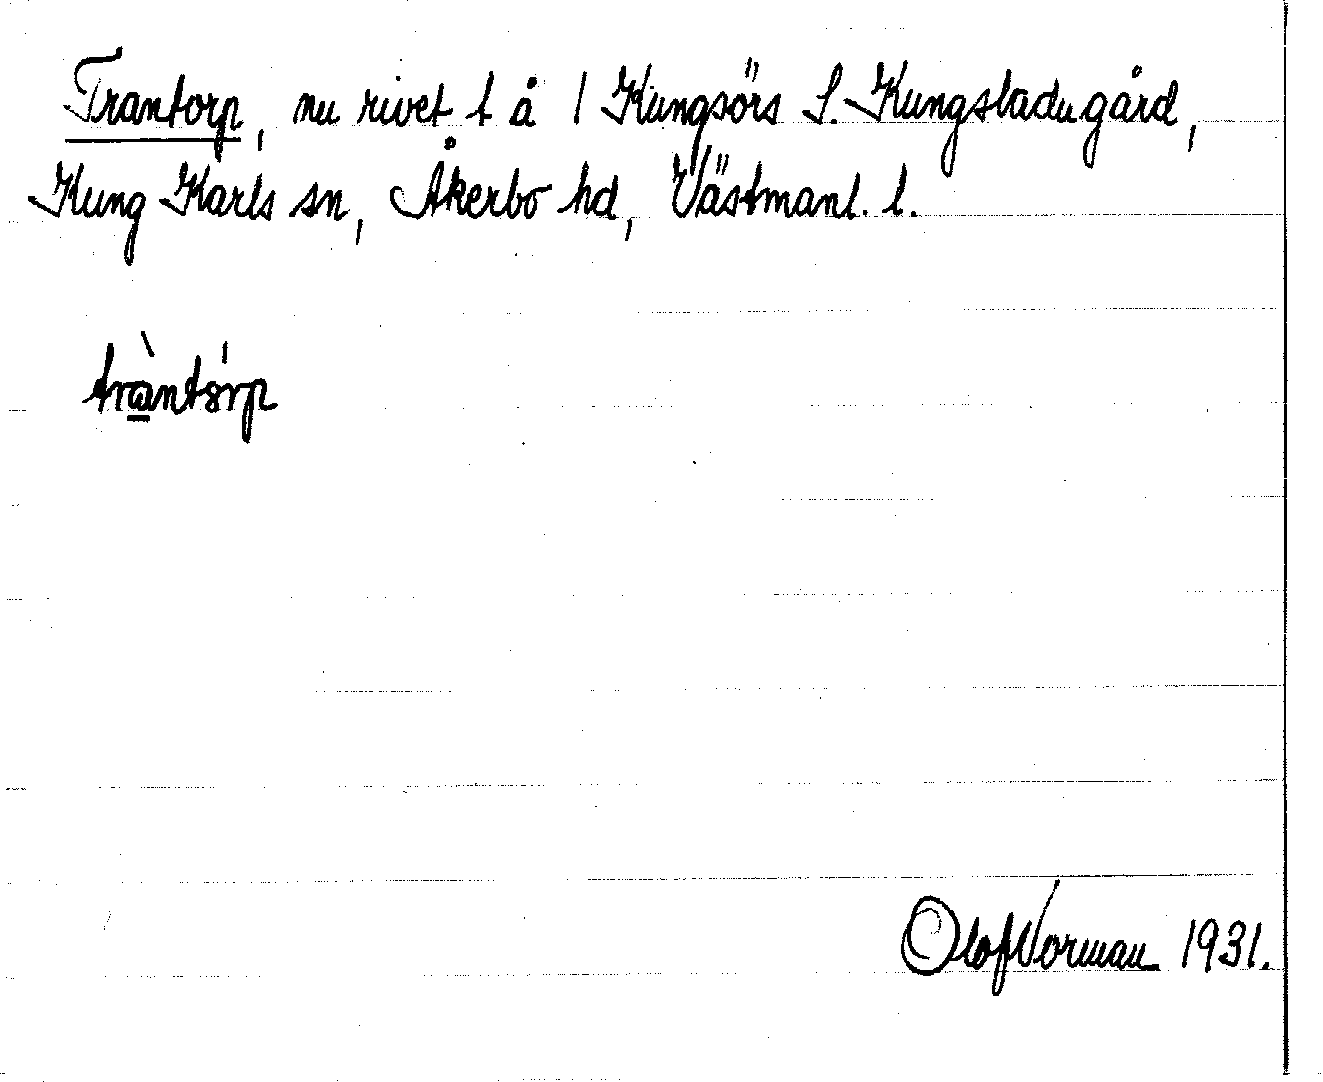 Trantorp, nu rivet t å 1 Kungsörs S. Kungsladugård,
Kung Karls sn, Åkerbo hd, Västmanl. l.
tràntsrp
Olof Norman 1931.